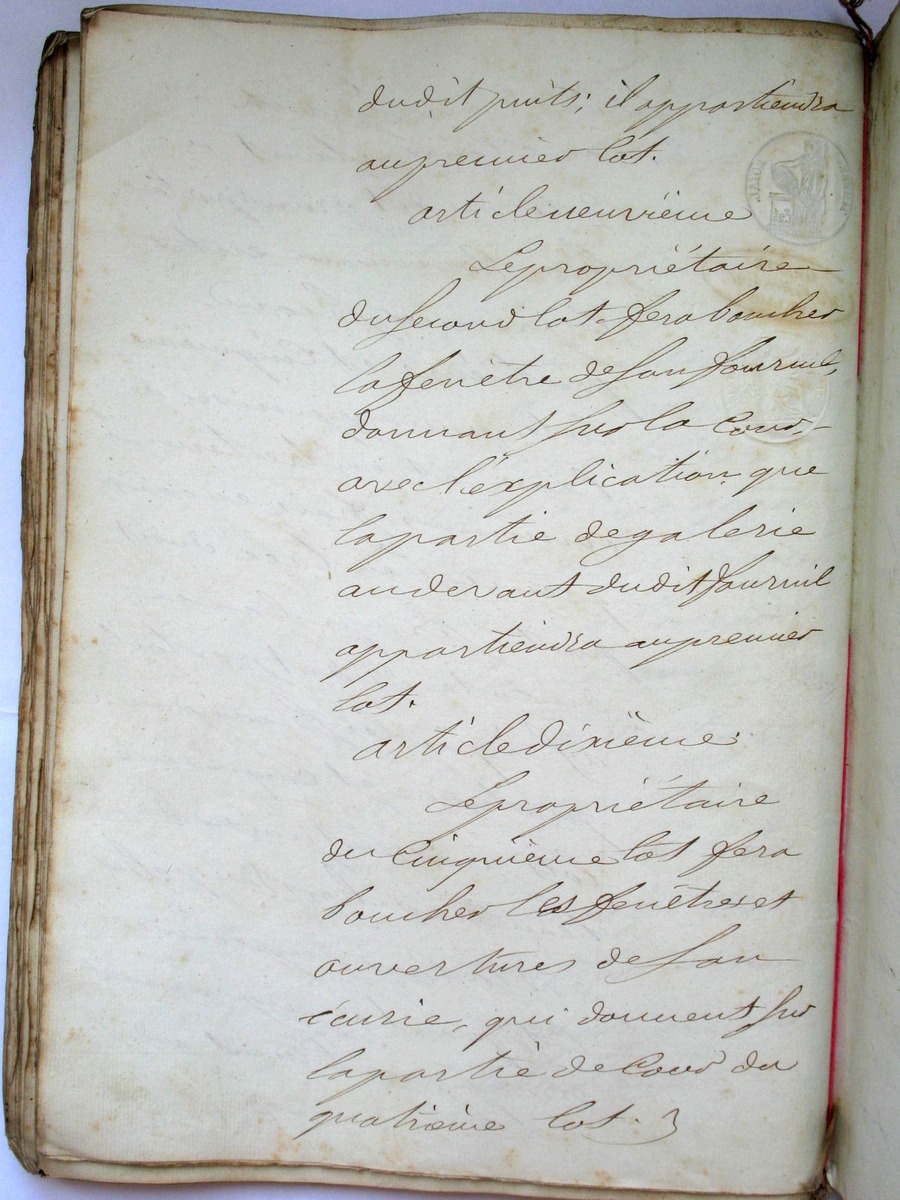 dudit puits; il appartiendra
au premier lot.
article neuvième
Le propriétaire
du second lot fera boucher
la fenêtre de son fournil,
donnant sur la cour
avec l'explication, que
la partie de galerie
au devant dudit fournil
appartiendra au premier
lot.
article dixième.
Le propriétaire
du cinquième lot fera
boucher les fenêtres et
ouvertures de son
écurie, qui donnent sur
la partie de cour du
quatrième lot.